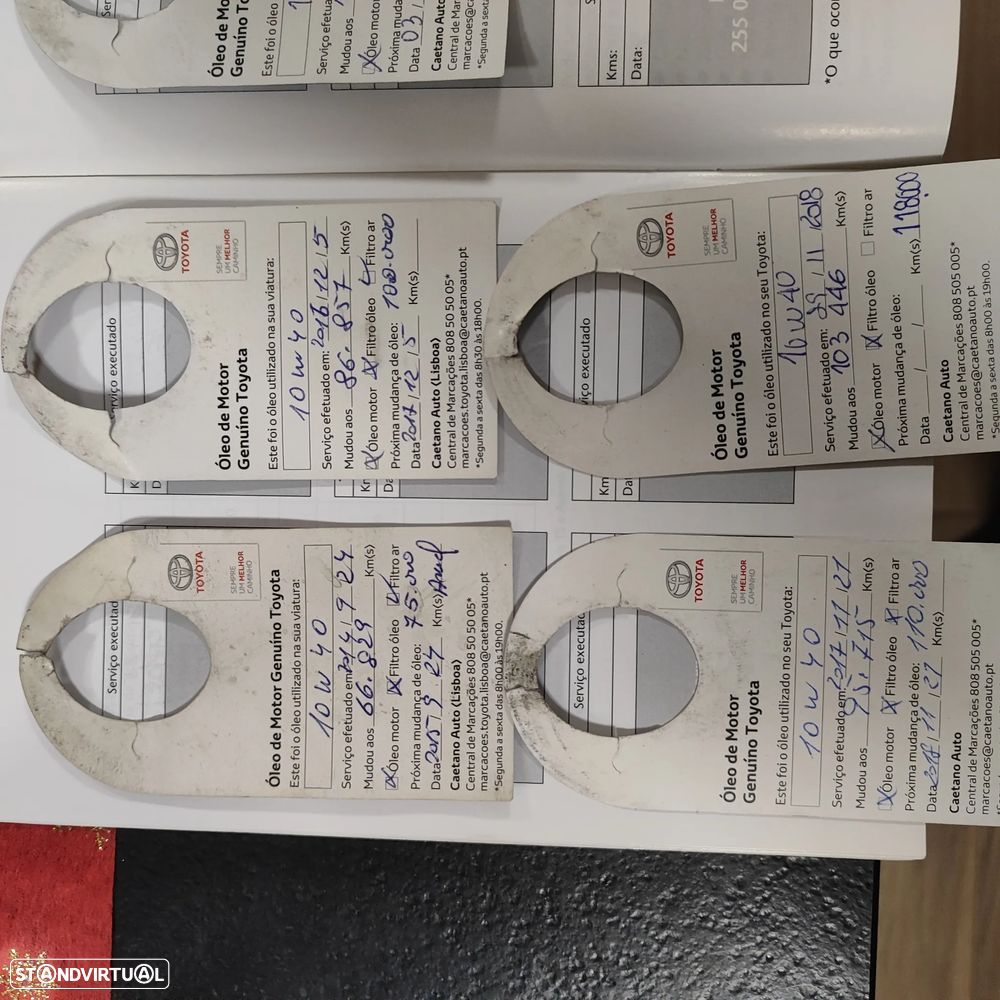 Óleo de Mot
Genuíno Toy
Este foi o óleo
Serviço efetua
Mudou aos
Óleo motor
Próxima muda
Data 03
Caetano Auto
Central de Mar
marcacoes@ca
*Segunda a sexta
Kms:
Data:
255 0
*O que ocor
TOYOTA
SEMPRE
UM MELHOR
CAMINHO
Óleo de Motor
Genuíno Toyota
Este foi o óleo utilizado na sua viatura:
10 W 40
Serviço efetuado em: 2016/12/5
Mudou aos 86.857 Km(s)
Óleo motor Filtro óleo Filtro ar
Próxima mudança de óleo: 100.000
Data 2017/12/5 Km(s)
Caetano Auto (Lisboa)
Central de Marcações 808 50 50 05*
marcacoes.toyota.lisboa@caetanoauto.pt
*Segunda a sexta das 8h30 às 18h00.
Serviço executado
TOYOTA
SEMPRE
UM MELHOR
CAMINHO
Óleo de Motor
Genuíno Toyota
Este foi o óleo utilizado no seu Toyota:
10W40
Serviço efetuado em: 29/11/2018
Mudou aos 103 446 Km(s)
Óleo motor Filtro óleo Filtro ar
Próxima mudança de óleo:
Data / / Km(s) 118000
Caetano Auto
Central de Marcações 808 505 005*
marcacoes@caetanoauto.pt
*Segunda a sexta das 8h00 às 19h00.
TOYOTA
SEMPRE
UM MELHOR
CAMINHO
Óleo de Motor Genuíno Toyota
Este foi o óleo utilizado na sua viatura:
10 W 40
Serviço efetuado em 2014/9/24
Mudou aos 66.829 Km(s)
Óleo motor Filtro óleo Filtro ar
Próxima mudança de óleo: 75.000
Data 2015/9/24 Km(s)
Caetano Auto (Lisboa)
Central de Marcações 808 50 50 05*
marcacoes.toyota.lisboa@caetanoauto.pt
*Segunda a sexta das 8h00 às 19h00.
Serviço executad
TOYOTA
SEMPRE
UM MELHOR
CAMINHO
Óleo de Motor
Genuíno Toyota
Este foi o óleo utilizado no seu Toyota:
10 W 40
Serviço efetuado em 2017/11/27
Mudou aos 95.715 Km(s)
Óleo motor Filtro óleo Filtro ar
Próxima mudança de óleo: 110.000
Data 2018/11/27 Km(s)
Caetano Auto
Central de Marcações 808 505 005*
marcacoes@caetanoauto.pt
Serviço executad
STANDVIRTUAL